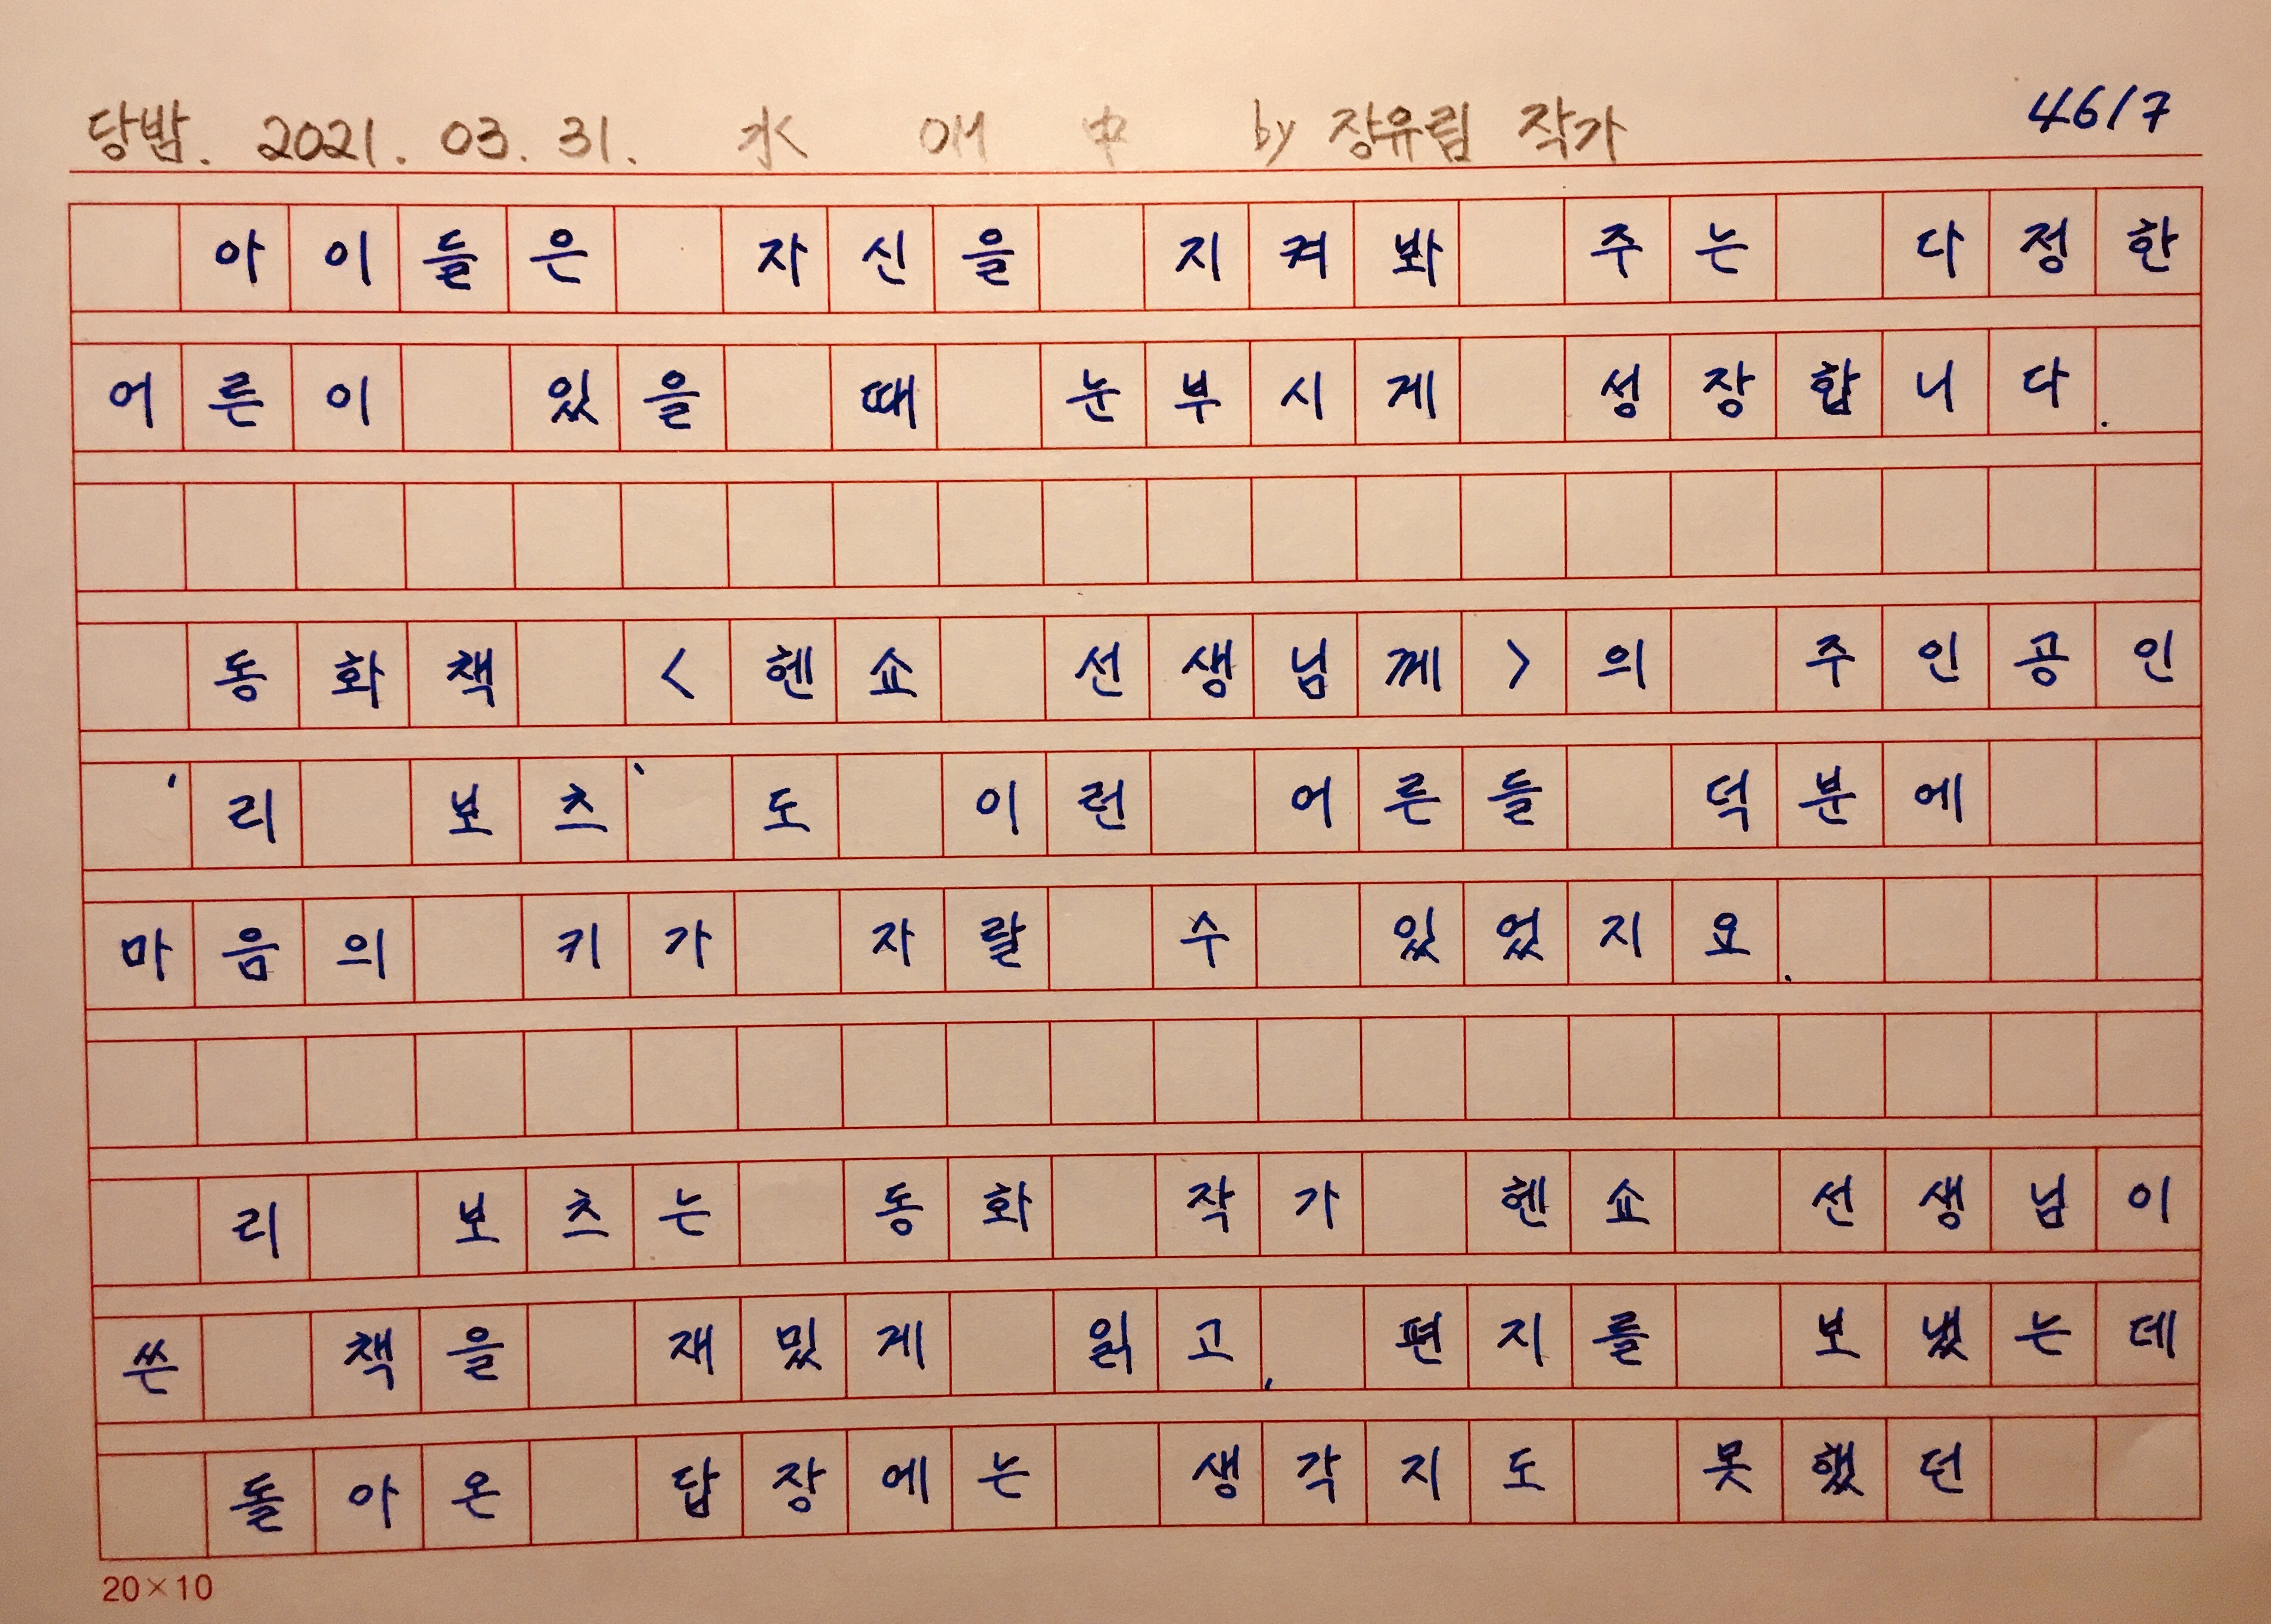 당밤. 2021. 03. 31. 水 OM 中 by 장유림 작가 4617
아이들은 자신을 지켜봐 주는 다정한
어른이 있을 때 눈부시게 성장합니다.
동화책 <헨쇼 선생님께>의 주인공인
'리 보츠'도 이런 어른들 덕분에
마음의 키가 자랄 수 있었지요.
리 보츠는 동화 작가 헨쇼 선생님이
쓴 책을 재밌게 읽고, 편지를 보냈는데
돌아온 답장에는 생각지도 못했던
20×10